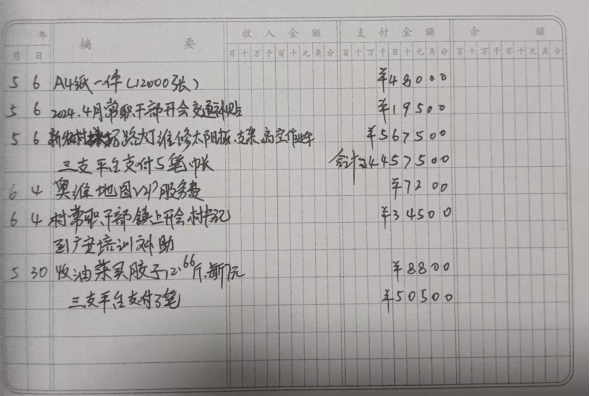 年 收入金额 支付金额 余额
月 日 摘要 百十万千百十元角分 百十万千百十元角分 百十万千百十元角分
5 6 A4纸一件(12000张) ¥48000
5 6 2024.4月常职干部开会交通补贴 ¥19500
5 6 路灯维修太阳板.支架 ¥567500
三支平台支付5笔 合计 4457500
6 4 奥维地图VIP服务费 ¥7200
6 4 村常职干部镇上开会村书记 ¥34500
到广安培训补助
5 30 收油菜买胶子12.66斤 ¥8800
三支平台支付了笔 ¥50500